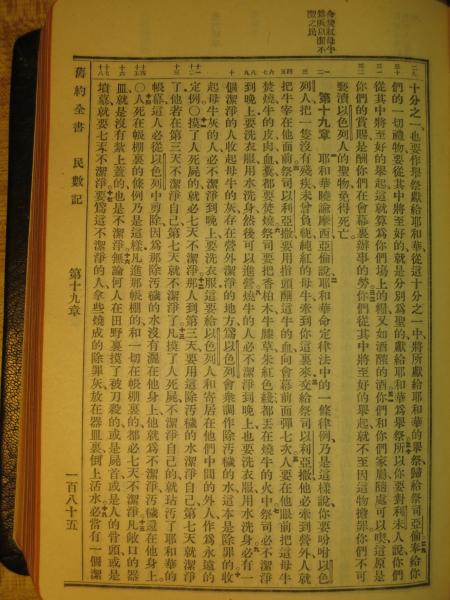 十分之一、也要作舉祭獻給耶和華從這十分之一中、將所獻給耶和華的舉祭歸給祭司亞倫奉給你
們的一切禮物要從其中將至好的就是分別爲聖的獻給耶和華爲舉祭所以你要對利未人說你們
從其中將至好的舉起這就算爲你們場上的糧又如酒醡的酒你們和你們家屬隨處可以喫這原是
你們的賞賜是酬你們在會幕裏辦事的勞你們從其中將至好的舉起就不至因這物擔罪你們不可
褻瀆以色列人的聖物免得死亡
第十九章 耶和華曉諭摩西亞倫說耶和華命定律法中的一條律例乃是這樣說你要吩咐以色
列人把一隻沒有殘疾未曾負軛純紅的母牛牽到你這裏來交給祭司以利亞撒他必牽到營外人就
把牛宰在他面前祭司以利亞撒要用指頭蘸這牛的血向會幕前面彈七次人要在他眼前把這母牛
焚燒牛的皮肉血糞都要焚燒祭司要把香柏木牛膝草朱紅色綫都丟在燒牛的火中祭司必不潔淨
到晚上要洗衣服用水洗身然後可以進營燒牛的人必不潔淨到晚上也要洗衣服用水洗身必有一
個潔淨的人收起母牛的灰存在營外潔淨的地方爲以色列會衆調作除污穢的水這本是除罪的收
起母牛灰的人必不潔淨到晚上要洗衣服這要給以色列人和寄居在他們中間的外人作爲永遠的
定例○摸了人死屍的就必七天不潔淨那人到第三天要用這除污穢的水潔淨自己第七天就潔淨
了他若在第三天不潔淨自己第七天就不潔淨了凡摸了人死屍不潔淨自己的就玷污了耶和華的
帳幕這人必從以色列中剪除因爲那除污穢的水沒有灑在他身上他就爲不潔淨污穢還在他身上
○人死在帳棚裏的條例乃是這樣凡進那帳棚的和一切在帳棚裏的都必七天不潔淨凡敞口的器
皿就是沒有紮上蓋的也是不潔淨無論何人在田野裏摸了被刀殺的或是屍首或是人的骨頭或是
墳墓就要七天不潔淨要爲這不潔淨的人拿些燒成的除罪灰放在器皿裏倒上活水必當有一個潔
舊約全書 民數記 第十九章 一百八十五